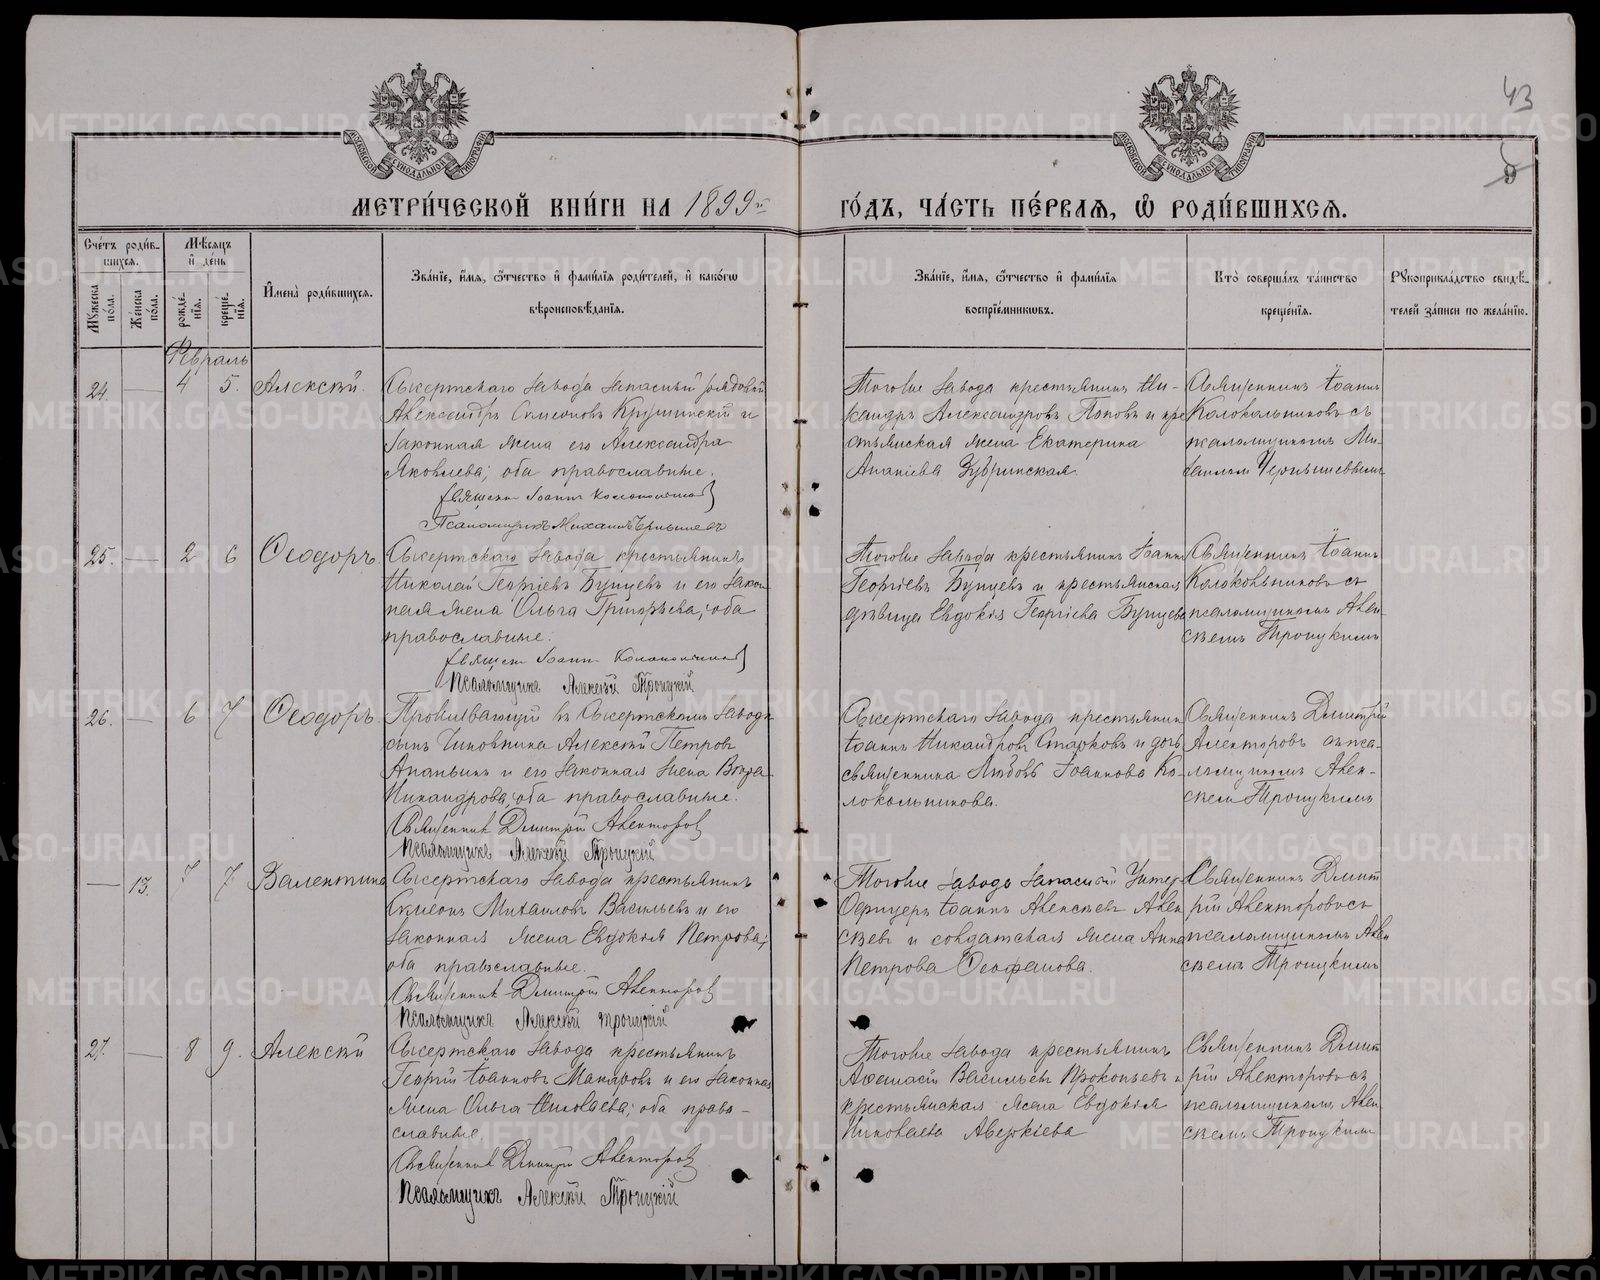 43
МОСКОВСКОЙ СѴНОДАЛЬНОЙ ТИПОГРАФІИ
МОСКОВСКОЙ СѴНОДАЛЬНОЙ ТИПОГРАФІИ
МЕТРИ́ЧЕСКОЙ КНИ́ГИ НА 1899й
ГО́ДЪ, ЧА́СТЬ ПЕ́РВАЯ, Ѽ РОДИ́ВШИХСЯ.
Сче́тъ роди́в-
шихся.
Мужеска по́ла.
Же́нска по́ла.
Мѣ́сяцъ
и҆ де́нь
рожде́-
нїя.
креще́-
нїя.
И҆мена̀ роди́вшихся.
Зва́нїе, и҆́мя, ѻ҆́тчество и҆ фами́лїя роди́телей, и҆ како́гѡ
вѣроисповѣ́данїя.
Зва́нїе, и҆́мя, ѻ҆́тчество и҆ фами́лїя
воспрїе́мникѡвъ.
Кто̀ соверша́лъ та́инство
креще́нїя.
Рꙋкоприкла́дство свидѣ́-
телей за́писи по жела́нїю.
Февраль
24. — 4 5. Алексѣй.
Сысертскаго завода запасный рядовой
Александръ Симеоновъ Крушинскій и
законная жена его Александра
Яковлева, оба православные.
Священ. Іоаннъ Колокольников
Псаломщикъ Михаилъ Чернышевъ
Тогоже завода крестьянинъ Ни-
кандръ Александровъ Поповъ и кре
стьянская жена Екатерина
Ананіева Зубринская
Священникъ Іоаннъ
Колокольниковъ съ
псаломщикомъ Ми-
хаиломъ Чернышевымъ
25. — 2 6 Ѳеодоръ
Сысертскаго завода крестьянинъ
Николай Георгіевъ Бунцевъ и его закон
ная жена Ольга Григорьева, оба
православные.
Священ. Іоаннъ Колокольников
Псаломщикъ Алексѣй Троицкій
Тогоже завода крестьянинъ Іоаннъ
Георгіевъ Бунцевъ и крестьянская
дѣвица Евдокія Георгіева Бунцева
Священникъ Іоаннъ
Колокольниковъ съ
псаломщикомъ Алек-
сѣемъ Троицкимъ
26. — 6 7 Ѳеодоръ
Проживающій въ Сысертскомъ заводѣ
сынъ Чиновника Алексѣй Петровъ
Ананьинъ и его законная жена Вѣра
Никандрова, оба православные.
Священникъ Димитрій Алекторовъ
Псаломщикъ Алексѣй Троицкій
Сысертскаго завода крестьянин
Іоаннъ Никандровъ Старковъ и дочь
священника Любовь Іоаннова Ко-
локольникова.
Священникъ Димитрій
Алекторовъ съ пса-
ломщикомъ Алек-
сѣемъ Троицкимъ
— 13. 7 7 Валентина
Сысертскаго завода крестьянинъ
Симеонъ Михаиловъ Васильевъ и его
законная жена Евдокія Петрова;
оба православные.
Священникъ Димитрій Алекторовъ
Псаломщикъ Алексѣй Троицкій
Тогоже завода запасный Унтер-
Офицеръ Іоаннъ Алексѣевъ Алек
сѣевъ и солдатская жена Анна
Петрова Ѳеофанова.
Священникъ Димит
рій Алекторовъ съ
псаломщикомъ Алек
сѣемъ Троицкимъ
27. — 8 9. Алексѣй
Сысертскаго завода крестьянинъ
Георгій Іоанновъ Макаровъ и его законная
жена Ольга Николаева; оба право-
славные.
Священникъ Димитрій Алекторовъ
Псаломщикъ Алексѣй Троицкій
Тогоже завода крестьянинъ
Аѳанасій Васильевъ Прокопьевъ и
крестьянская жена Евдокія
Николаева Аверкіева
Священникъ Димит
рій Алекторовъ съ
псаломщикомъ Алек
сѣемъ Троицкимъ
METRIKI.GASO-URAL.RU